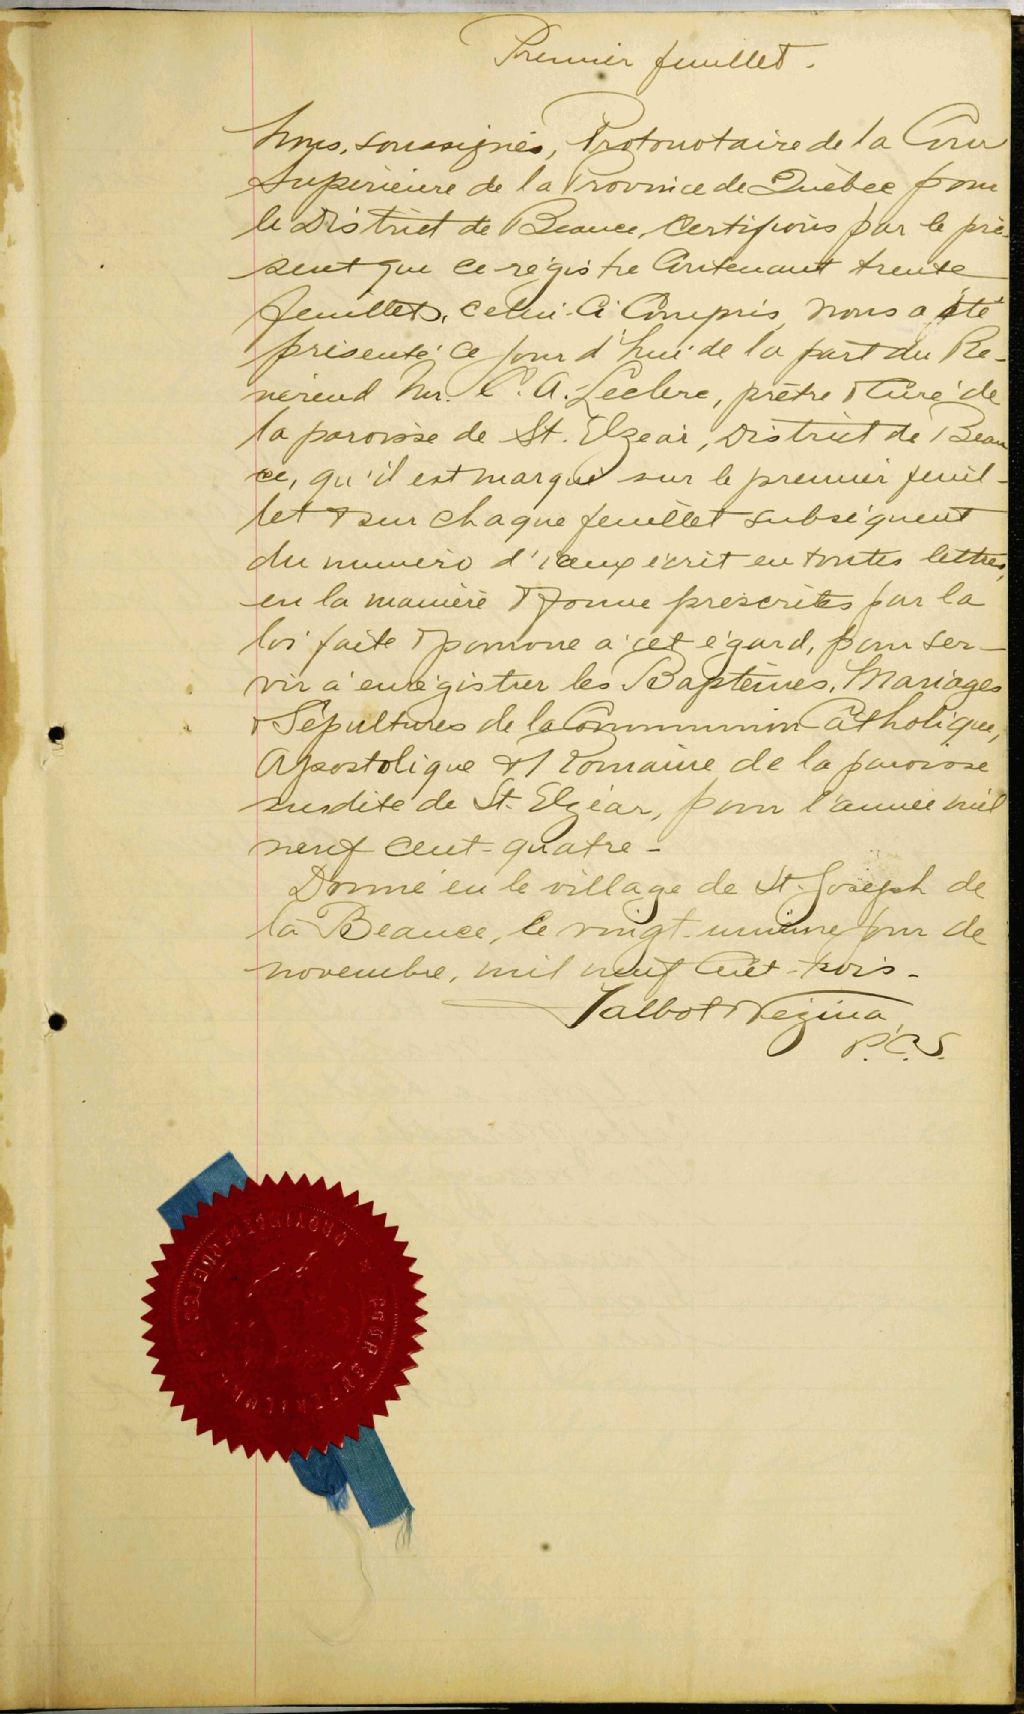 Premier feuillet.
Nous, soussignés, Protonotaire de la Cour
Supérieure de la Province de Québec pour
le District de Beauce, certifions par le pré-
sent que ce régistre contenant trente
feuillets, celui-ci compris, nous a été
présenté ce jour d'hui de la part du Ré-
vérend Mr. C. A. Leclerc, prêtre & Curé de
la paroisse de St. Elzéar, District de Beau
ce, qu'il est marqué sur le premier feuil-
let & sur chaque feuillet subséquent
du numéro d'iceux écrit en toutes lettres,
en la manière & forme prescrites par la
loi faite & pourvue à cet égard, pour ser-
vir à enrégistrer les Baptêmes, Mariages
& Sépultures de la Communion Catholique,
Apostolique & Romaine de la paroisse
susdite de St. Elzéar, pour l'année mil
neuf cent-quatre-
Donné en le village de St. Joseph de
la Beauce, le vingt-unième jour de
novembre, mil neuf cent-trois-
Talbot & Vézina
P.C.S.
COUR SUPERIEURE
PROVINCE DE QUEBEC